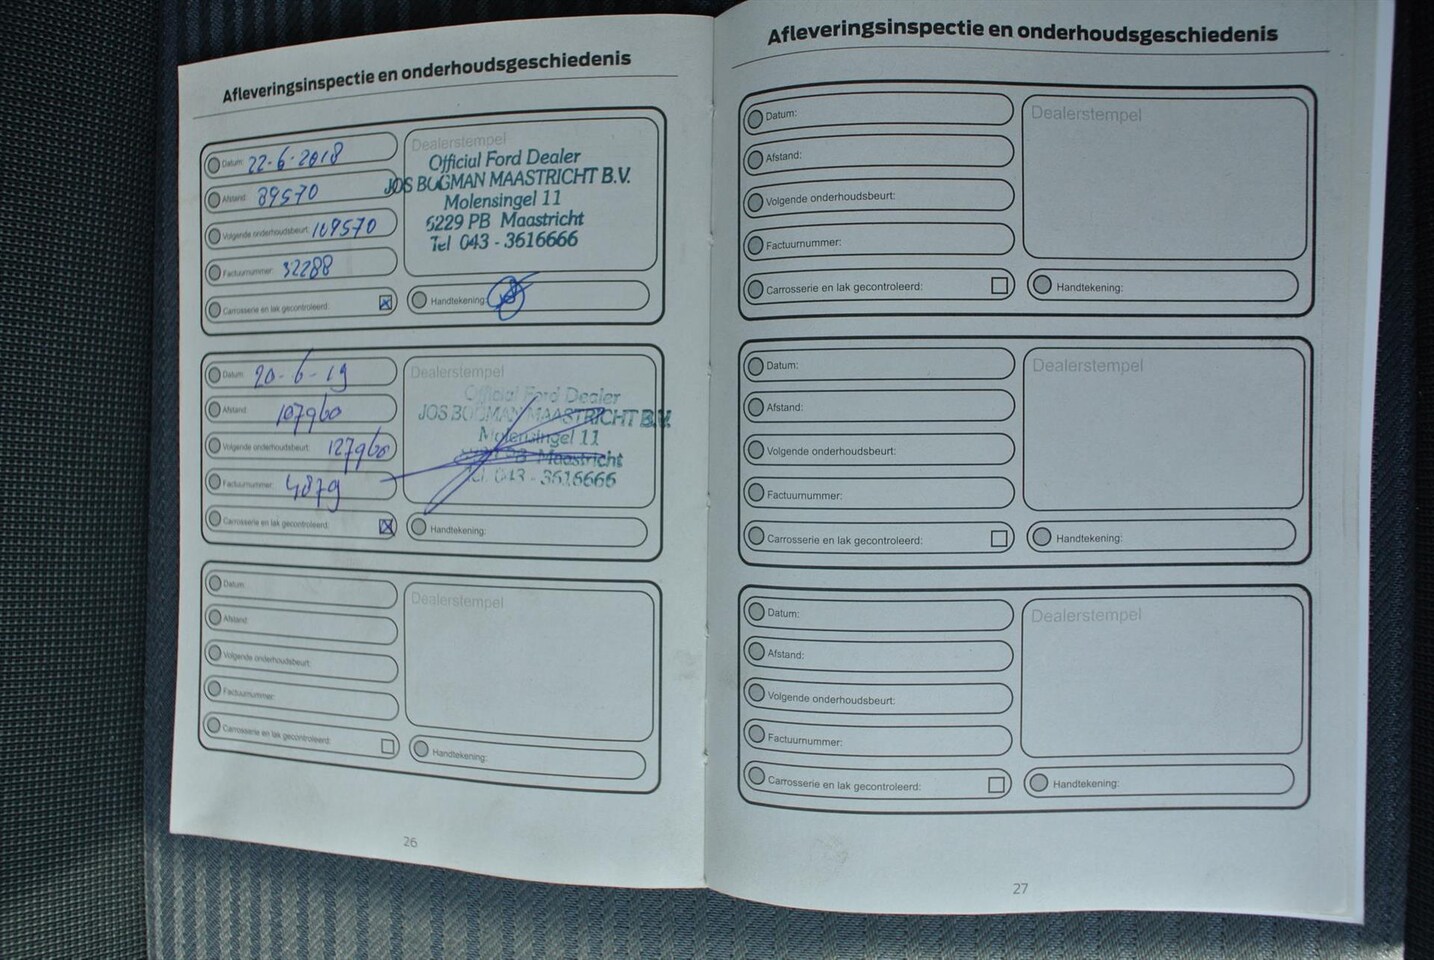 Afleveringsinspectie en onderhoudsgeschiedenis
Datum: 22-6-2018
Afstand: 89570
Volgende onderhoudsbeurt: 109570
Factuurnummer: 32288
Carrosserie en lak gecontroleerd:
Dealerstempel
Official Ford Dealer
JOS BOGMAN MAASTRICHT B.V.
Molensingel 11
6229 PB Maastricht
Tel 043 - 3616666
Handtekening:
Datum: 20-6-19
Afstand: 107960
Volgende onderhoudsbeurt: 127960
Factuurnummer: 4879
Carrosserie en lak gecontroleerd:
Dealerstempel
Official Ford Dealer
JOS BOGMAN MAASTRICHT B.V.
Molensingel 11
Maastricht
Tel. 043 - 3616666
Handtekening:
Datum:
Afstand:
Volgende onderhoudsbeurt:
Factuurnummer:
Carrosserie en lak gecontroleerd:
Dealerstempel
Handtekening:
26
Afleveringsinspectie en onderhoudsgeschiedenis
Datum:
Afstand:
Volgende onderhoudsbeurt:
Factuurnummer:
Carrosserie en lak gecontroleerd:
Dealerstempel
Handtekening:
Datum:
Afstand:
Volgende onderhoudsbeurt:
Factuurnummer:
Carrosserie en lak gecontroleerd:
Dealerstempel
Handtekening:
Datum:
Afstand:
Volgende onderhoudsbeurt:
Factuurnummer:
Carrosserie en lak gecontroleerd:
Dealerstempel
Handtekening:
27